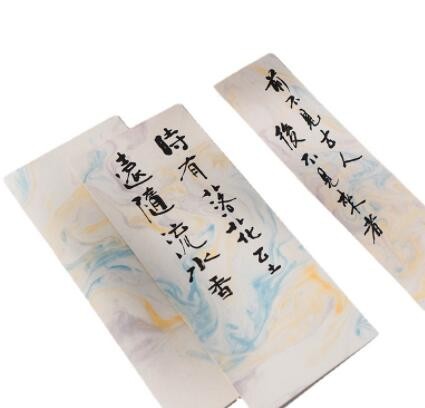 前不見古人
後不見來者
時有落花至
遠隨流水香